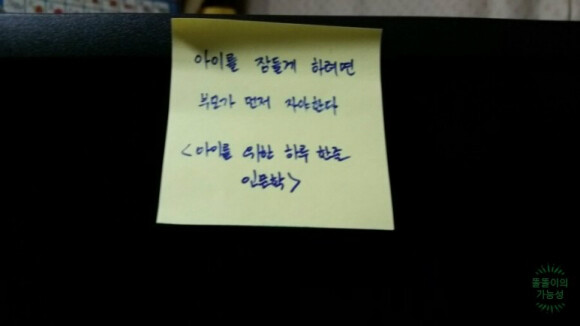 아이를 잠들게 하려면
부모가 먼저 자야한다
<아이를 위한 하루 한줄
인문학>
똘똘이의
가능성